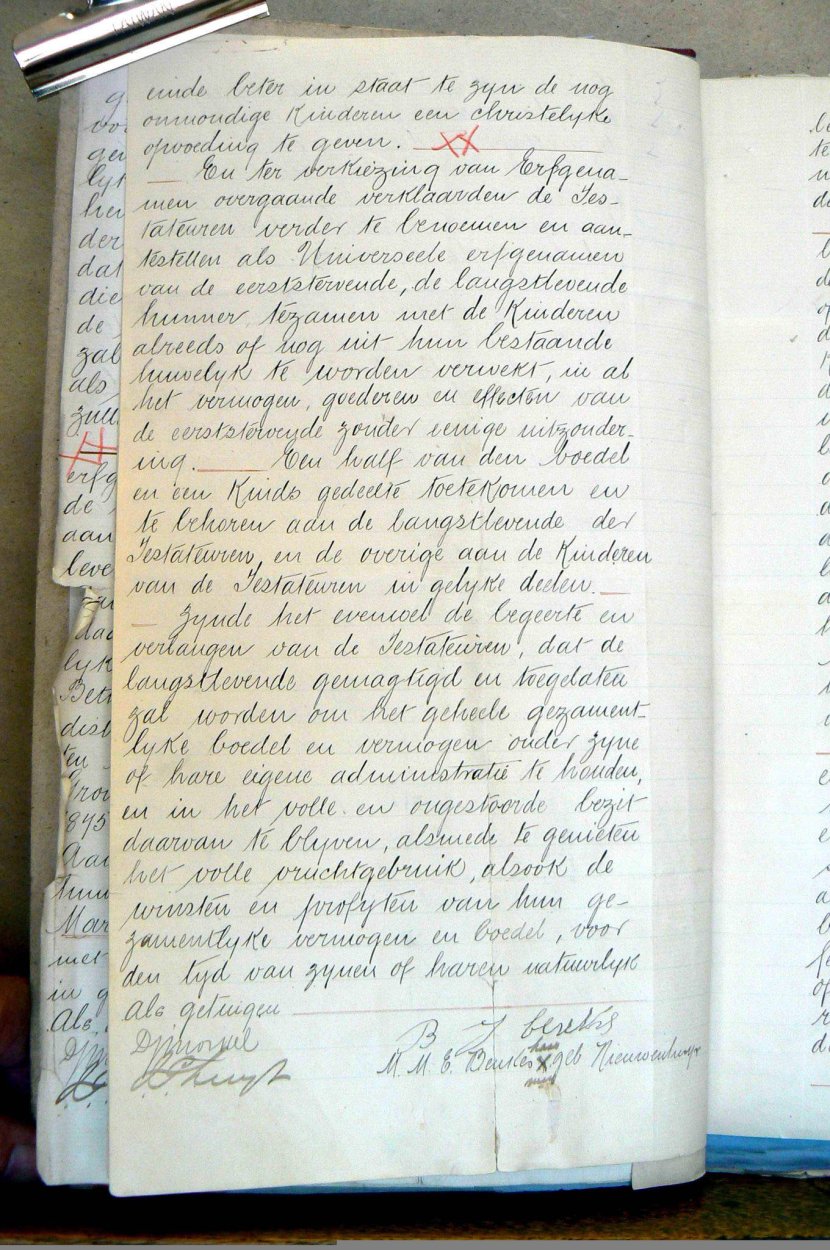 einde beter in staat te zyn de nog
onmondige Kinderen een christelyke
opvoeding te geven. XX
En ter verkiezing van Erfgena-
men overgaande verklaarden de Tes-
tateuren verder te benoemen en aan-
testellen als Universeele erfgenamen
van de eerststervende, de langstlevende
hunner, tezamen met de Kinderen
alreeds of nog uit hun bestaande
huwelyk te worden verwekt, in al
het vermogen, goederen en effecten van
de eerststervende zonder eenige uitzonder-
ing. Een half van den boedel
en een Kinds gedeelte toetekomen en
te behoren aan de langstlevende der
Testateuren, en de overige aan de Kinderen
van de Testateuren in gelyke deelen.
Zynde het evenwel de begeerte en
verlangen van de Testateuren, dat de
langstlevende gemagtigd en toegelaten
zal worden om het geheele gezament-
lyke boedel en vermogen onder zyne
of hare eigene administratie te houden,
en in het volle en ongestoorde bezit
daarvan te blyven, alsmede te genieten
het volle vruchtgebruik, alsook de
winsten en profyten van hun ge-
zamentlyke vermogen en boedel, voor
den tyd van zynen of haren natuurlyk
Als getuigen
B J beukes
her
M. M. E. Beukes X geb Nieuwenhuyz
merk
voo
gen
lyk
hen
der
dat
die
de
zal
als
XX
erfg
de
aan
leve
daa
lyk
Betr
dist
ten
Prov
1895
Aan
huw
Mar
met
in g
Als